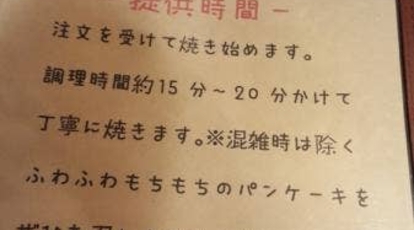 提供時間－
注文を受けて焼き始めます。
調理時間約15分～20分かけて
丁寧に焼きます。※混雑時は除く
ふわふわもちもちのパンケーキを